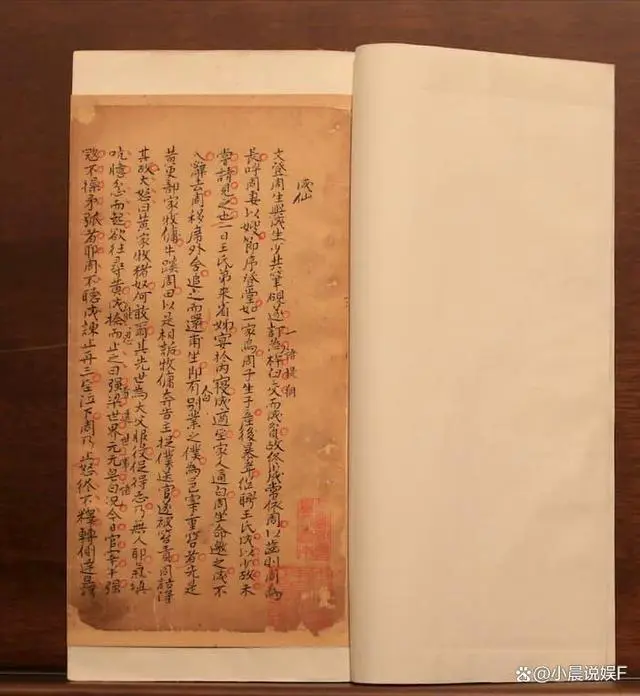 成仙
文登周生與成生少共筆硯遂訂為杵臼交而成貧故終歲常依周以齒則周為
一語提綱
長呼周妻以嫂節序登堂如一家焉周子生子產後暴卒繼聘王氏成以少故未
嘗請見之也一日王氏弟來省姊宴於內寢成適至家人通白周坐命邀之成不
入辭去周移席外舍追之而還甫坐即有別業之僕為邑宰重笞者先是
黃吏部家牧傭牛蹊周田以是相詬牧傭奔告主捉僕送官遂被笞責周詰得
其故大怒曰黃家牧豬奴何敢爾其先世為大父服役促得志乃無人耶氣填
吭臆忿而起欲往尋黃成捺而止之曰強梁世界元無皂白況今日官宰半強
能忍
寇不操矛弧者耶周不聽成諫止再三至泣下周乃止怒終不釋轉側達旦謂
@小晨说娱F